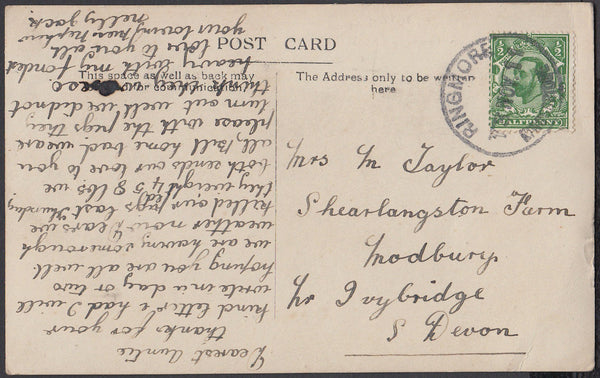 POST CARD
This space as well as back may
be used for communication.
The Address only to be written
here
RINGMORE
HALFPENNY
Mrs M Taylor
Shearlangston Farm
Modbury
Nr Ivybridge
S Devon
Dearest Auntie
thanks for your
kind letter & had I will
write in a day or two
hoping you are all well
we are having some rough
weather now & ears we
killed our pigs last Thursday
they weight 45 8 lbs we
both sends our love to you
all Bill home bad we are
please with the pigs they
turn out well we did not
think they were so
heavy with my fondest
love to you all
your loving niece & nephew
Nelly Jack